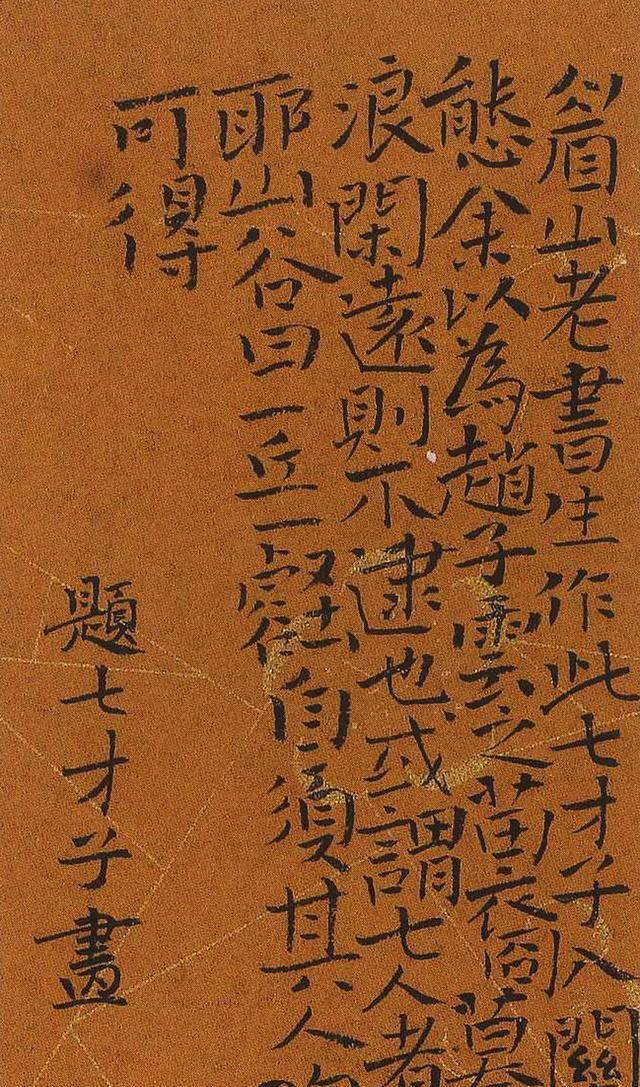 眉山老書生作此七才子入關
態余以為趙子雲之苗裔摹
浪閑遠則不逮也或謂七人者
耶山谷曰一丘一壑自須其人
可得
題七才子畫